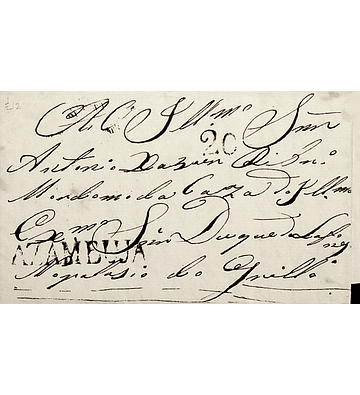 Ao Illmo Snr
20
Antonio Xavier Ribro
Mordomo da Caza do Illmo
Exmo Snr Duque de Lafões
AZAMBUJA
No palasio do Grillo